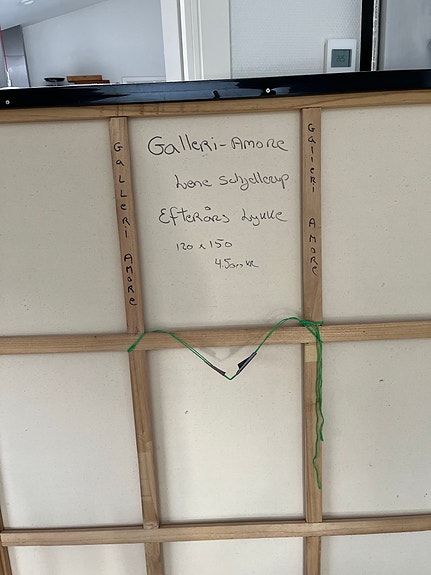 Galleri-Amore
Lene Schjellerup
Efterårs Lykke
120 x 150
4.500 kr
GaLLeRi AMORe
GaLLeRi AMORe